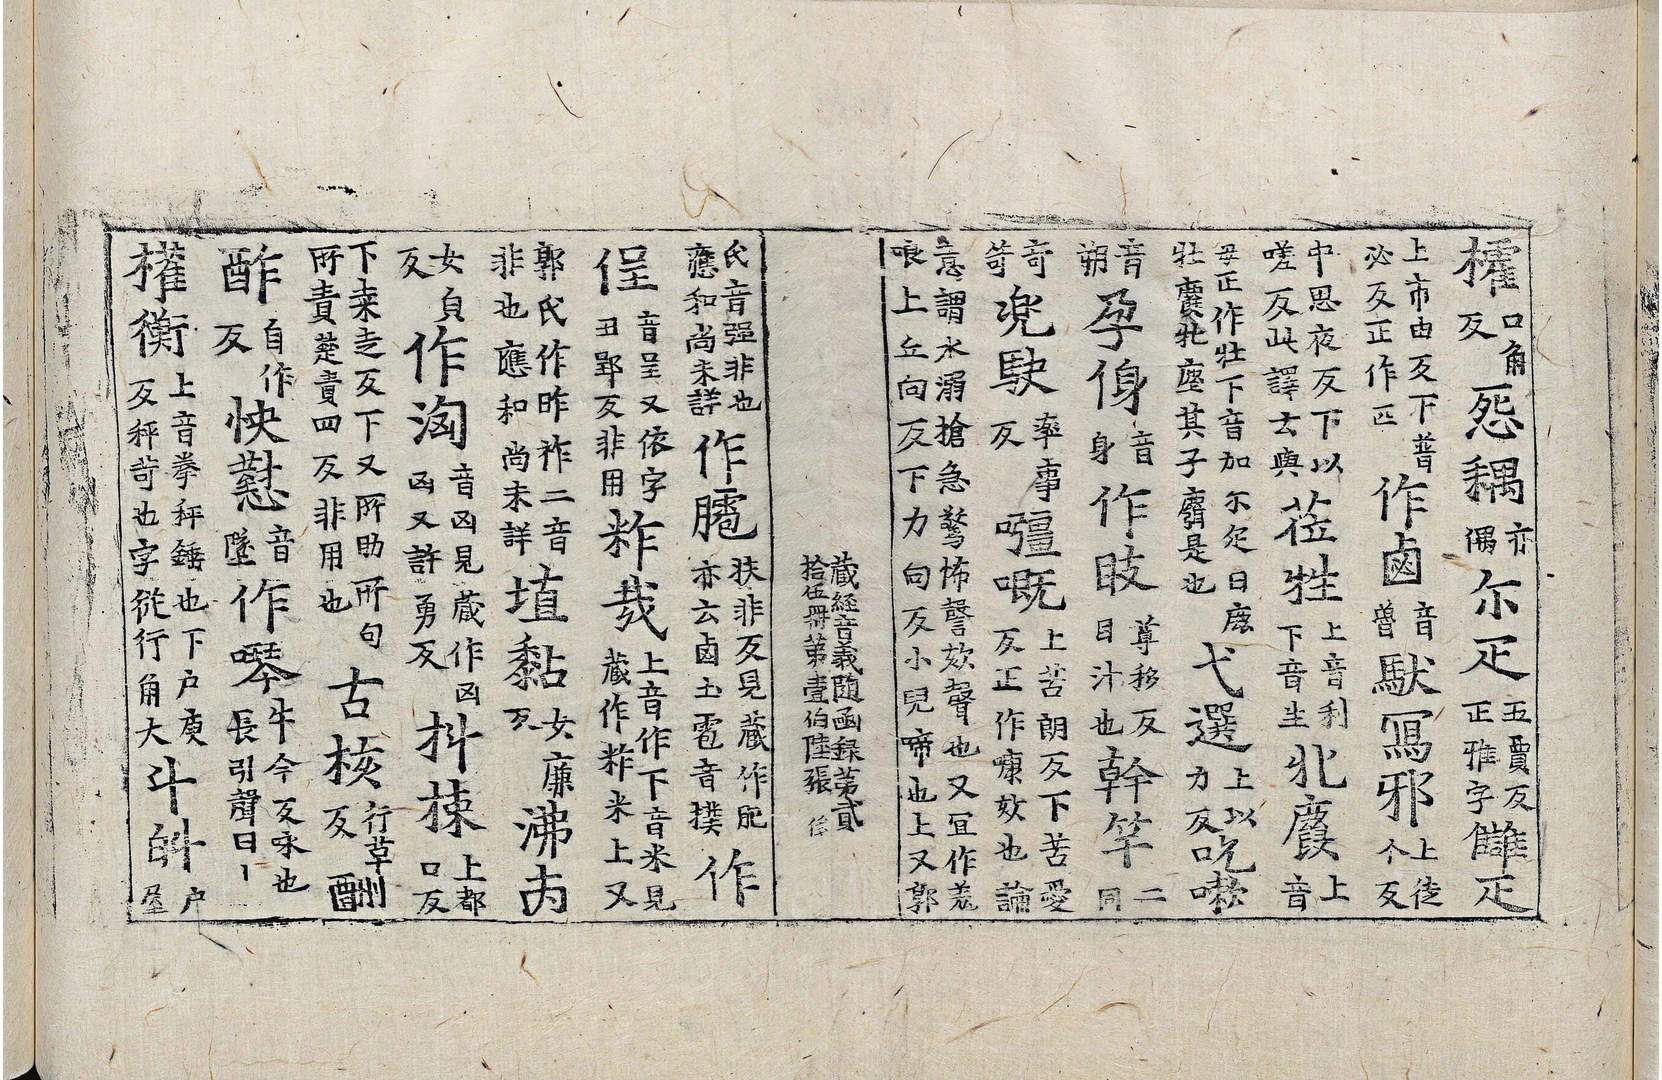 榷口角反惌耦亦偶尔疋五賈反正雅字雠疋
上市由反下普必反正作匹作鹵音魯馱冩邪上徒个反
中思夜反下以嗟反此譯云與莅牲上音利下音生牝麚上音
毋正作牡下音加尔疋曰鹿牡麚牝麀其子麛是也弋選上以力反吃嗽
音朔孕身音身作眵尊移反目汁也幹竿二同
奇笴兕駛率事反嘅上苦朗反下苦愛反正作欬也論
意謂水溺搶急驚怖謦欬聲也又冝作羗哴上丘向反下力向反小兒啼也上又郭
藏經音義随函録第貳
拾伍冊第壹伯陸張
氏音强非也應和尚未詳作扶非反見藏作肥亦云鹵土雹音撲作
侱音呈又依字丑郢反非用粁哉上音作下音米見藏作粁米上又
郭氏作昨祚二音非也應和尚未詳埴黏女廉反沸
女負反作洶音凶見藏作凶凶又許勇反抖揀上都口反
下来走反下又所助所句所責楚責四反非用也古核行革反酬
酢自作反怏懟音墜作噖牛今反呩也長引聲曰丨
權衡上音拳秤錘也下户庚反秤笴也字従行角大斗斛户屋